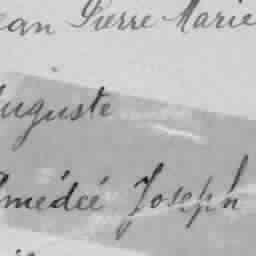 ean Pierre Marie
Auguste
Amédée Joseph